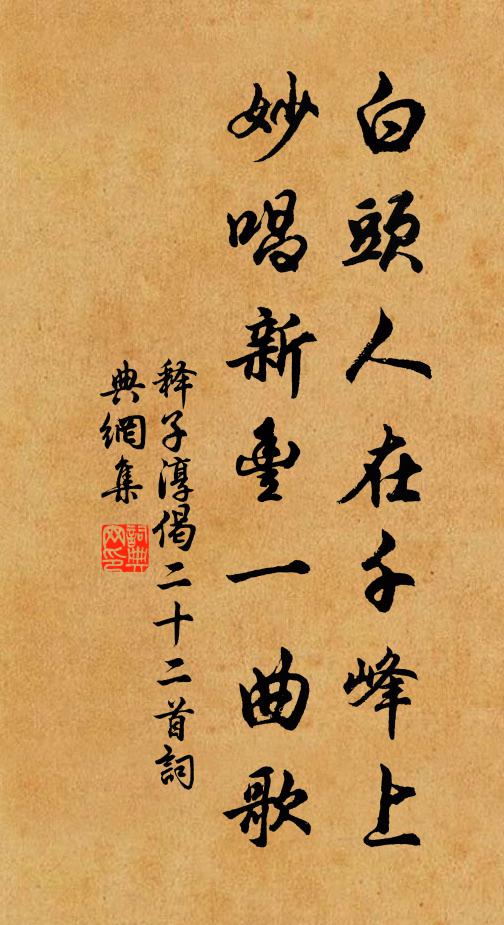 白頭人在千峰上
妙唱新豐一曲歌
釋子淳偈二十二首詞
典網集
詞典
网印